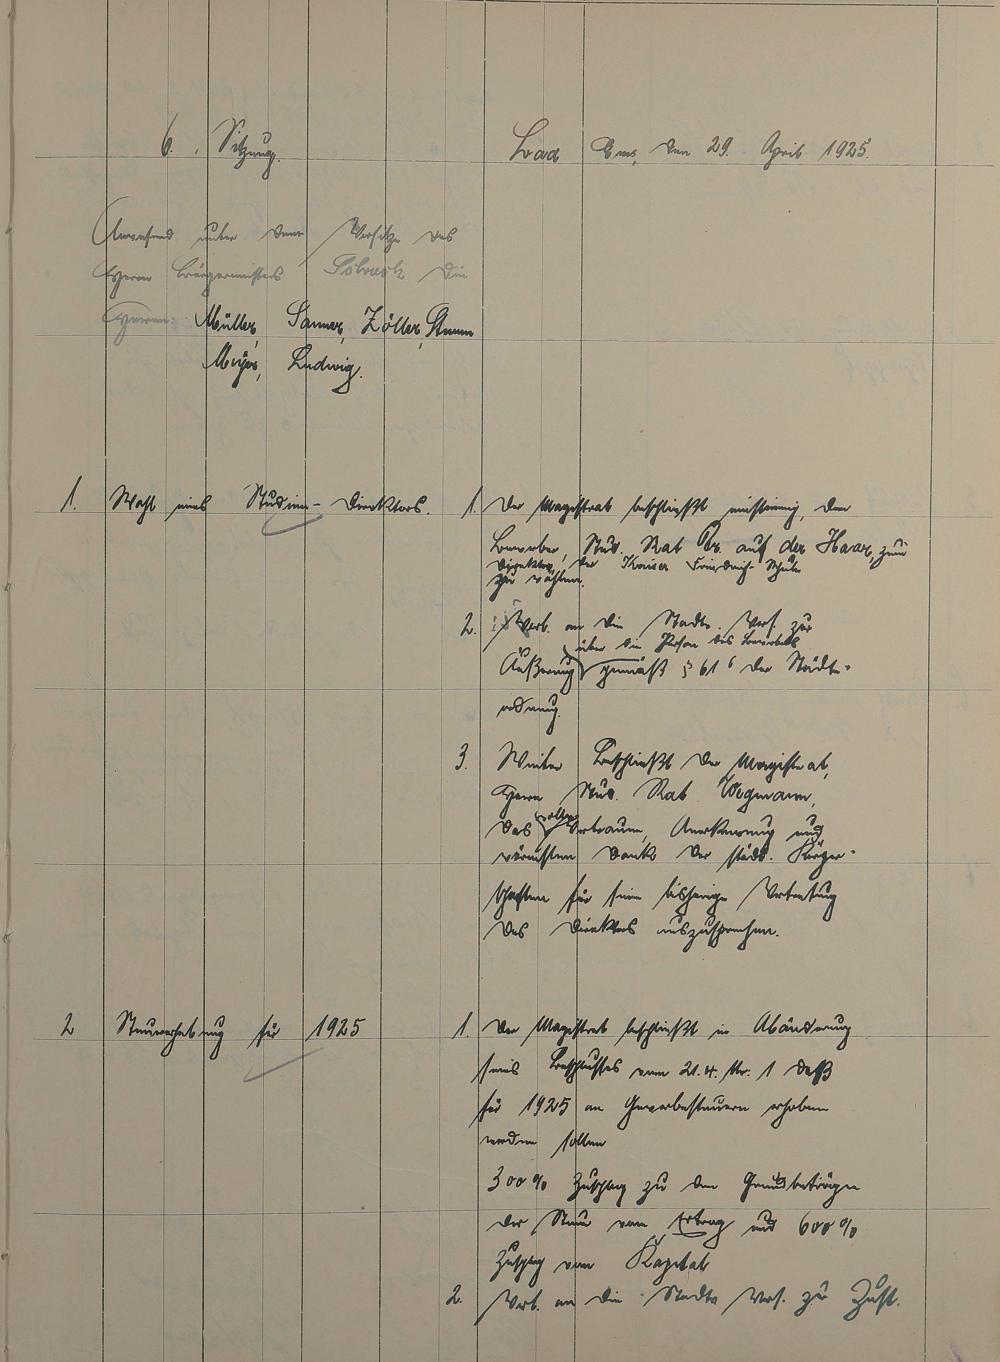 6. Sitzung.
Bad Ems, den 29. April 1925.
Anwesend unter dem Vorsitze des
Herrn Bürgermeisters die
Herren: Müller, Sanner, Zöller, Stemm
Meyer, Ludwig.
1. Wahl eines Studien-Direktors.
1. Der Magistrat beschließt einstimmig, den
Bewerber, Stud. Rat Dr. auf der Haar, zum
Direktor der Kaiser Friedrich-Schule
zu wählen.
2. Verb. an die Stadtv. Vers. zur
über die Person des Bewerbers
Äußerung gemäß § 61 6 der Städte-
ordnung.
3. Weiter beschließt der Magistrat,
Herrn Stud. Rat Wegmann,
volle
das Vertrauen, Anerkennung und
wärmsten Dank der städt. Körper-
schaften für seine bisherige Vertretung
des Direktors auszusprechen.
2 Steuererhebung für 1925
1. Der Magistrat beschließt in Abänderung
seines Beschlusses vom 21.4. Nr. 1 daß
für 1925 an Gewerbesteuern erhoben
werden sollen
300% Zuschlag zu den Grundbeträgen
der Steuer vom Ertrag und 600%
Zuschlag vom Kapital
2. Verb. an die Stadtv. Vers. zur Zust.